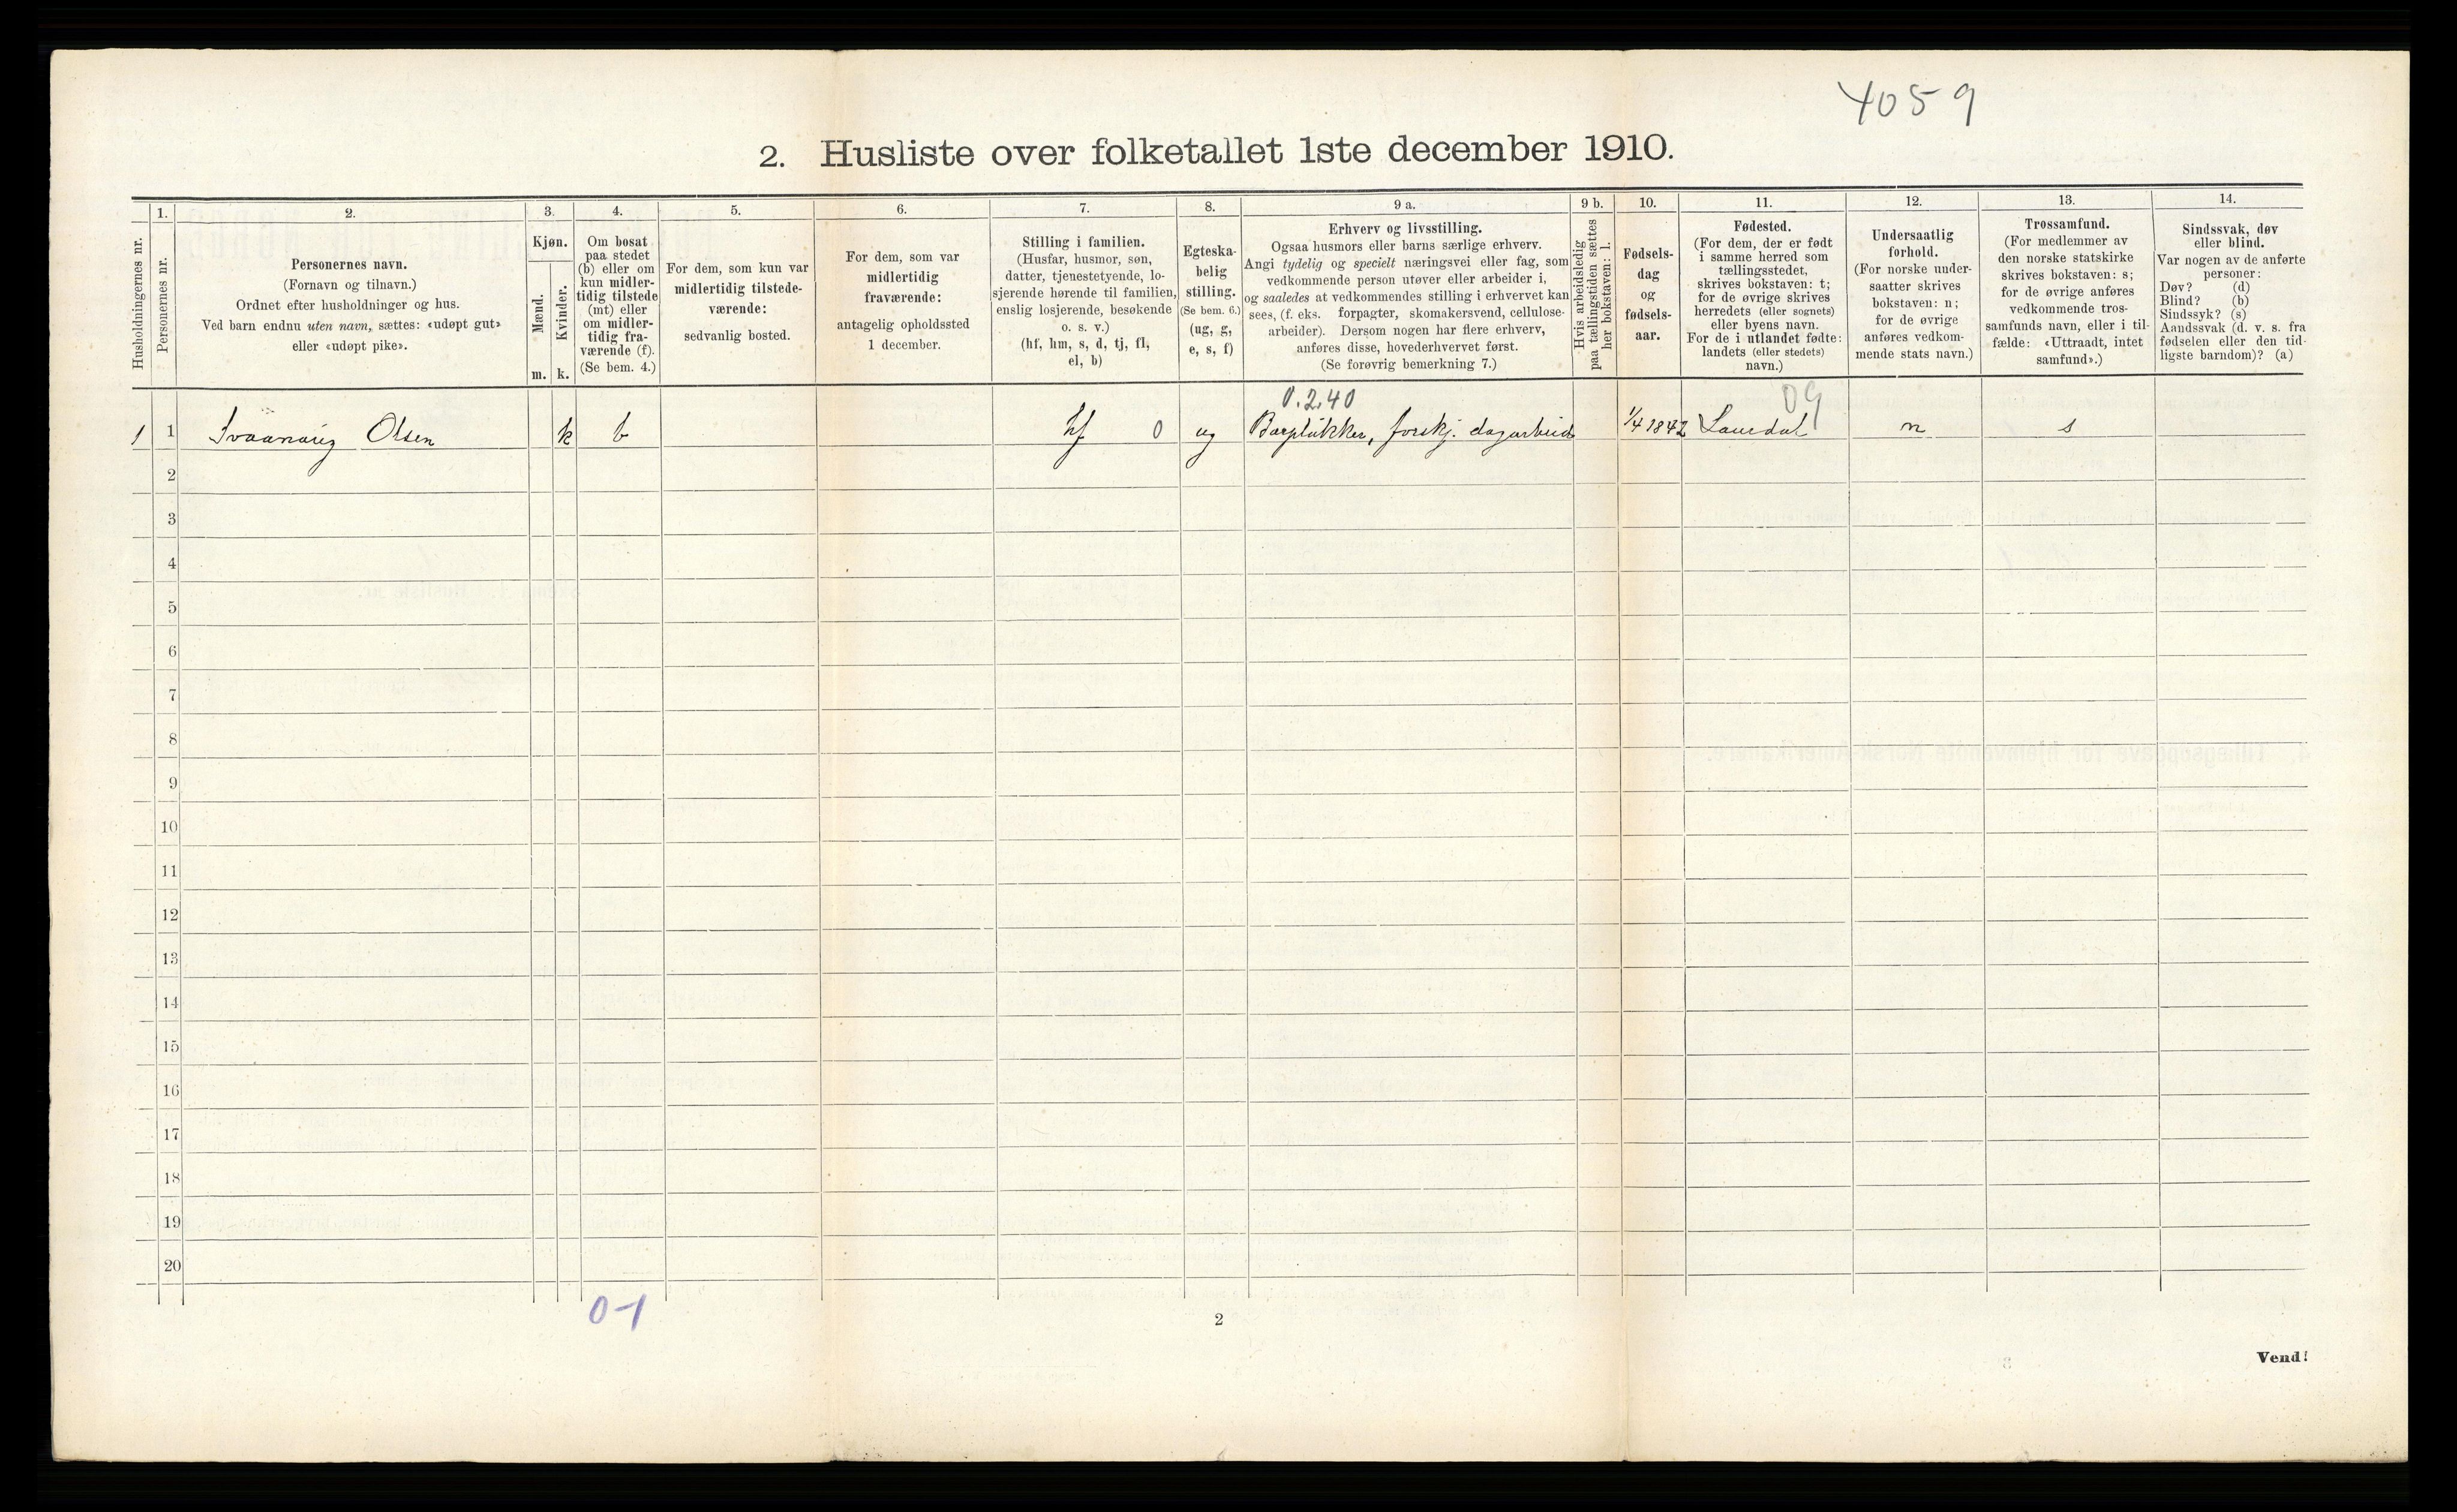 4059
2. Husliste over folketallet 1ste december 1910.
Husholdningernes nr.
1.
Personernes nr.
2.
Personernes navn.
(Fornavn og tilnavn.)
Ordnet efter husholdninger og hus.
Ved barn endnu uten navn, sættes: «udøpt gut»
eller «udøpt pike».
3.
Kjøn.
Mænd.
Kvinder.
m. k.
4.
Om bosat
paa stedet
(b) eller om
kun midler-
tidig tilstede
(mt) eller
om midler-
tidig fra-
værende (f).
(Se bem. 4.)
5.
For dem, som kun var
midlertidig tilstede-
værende:
sedvanlig bosted.
6.
For dem, som var
midlertidig
fraværende:
antagelig opholdssted
1 december.
7.
Stilling i familien.
(Husfar, husmor, søn,
datter, tjenestetyende, lo-
sjerende hørende til familien,
enslig losjerende, besøkende
o. s. v.)
(hf, hm, s, d, tj, fl,
el, b)
8.
Egteska-
belig
stilling.
(Se bem. 6.)
(ug, g,
e, s, f)
9 a.
Erhverv og livsstilling.
Ogsaa husmors eller barns særlige erhverv.
Angi tydelig og specielt næringsvei eller fag, som
vedkommende person utøver eller arbeider i,
og saaledes at vedkommendes stilling i erhvervet kan
sees, (f. eks. forpagter, skomakersvend, cellulose-
arbeider). Dersom nogen har flere erhverv,
anføres disse, hovederhvervet først.
(Se forøvrig bemerkning 7.)
9 b.
Hvis arbeidsledig
paa tællingstiden sættes
her bokstaven: l.
10.
Fødsels-
dag
og
fødsels-
aar.
11.
Fødested.
(For dem, der er født
i samme herred som
tællingsstedet,
skrives bokstaven: t;
for de øvrige skrives
herredets (eller sognets)
eller byens navn.
For de i utlandet fødte:
landets (eller stedets)
navn.)
12.
Undersaatlig
forhold.
(For norske under-
saatter skrives
bokstaven: n;
for de øvrige
anføres vedkom-
mende stats navn.)
13.
Trossamfund.
(For medlemmer av
den norske statskirke
skrives bokstaven: s;
for de øvrige anføres
vedkommende tros-
samfunds navn, eller i til-
fælde: «Uttraadt, intet
samfund».)
14.
Sindssvak, døv
eller blind.
Var nogen av de anførte
personer:
Døv? (d)
Blind? (b)
Sindssyk? (s)
Aandssvak (d. v. s. fra
fødselen eller den tid-
ligste barndom)? (a)
0.2.40 09
1 1 Svaanaug Olsen k b hf 0 ug Bærplukker, forskj. dagarbeid 1/4 1842 Laurdal n s
2
3
4
5
6
7
8
9
10
11
12
13
14
15
16
17
18
19
20
0-1
2
Vend!